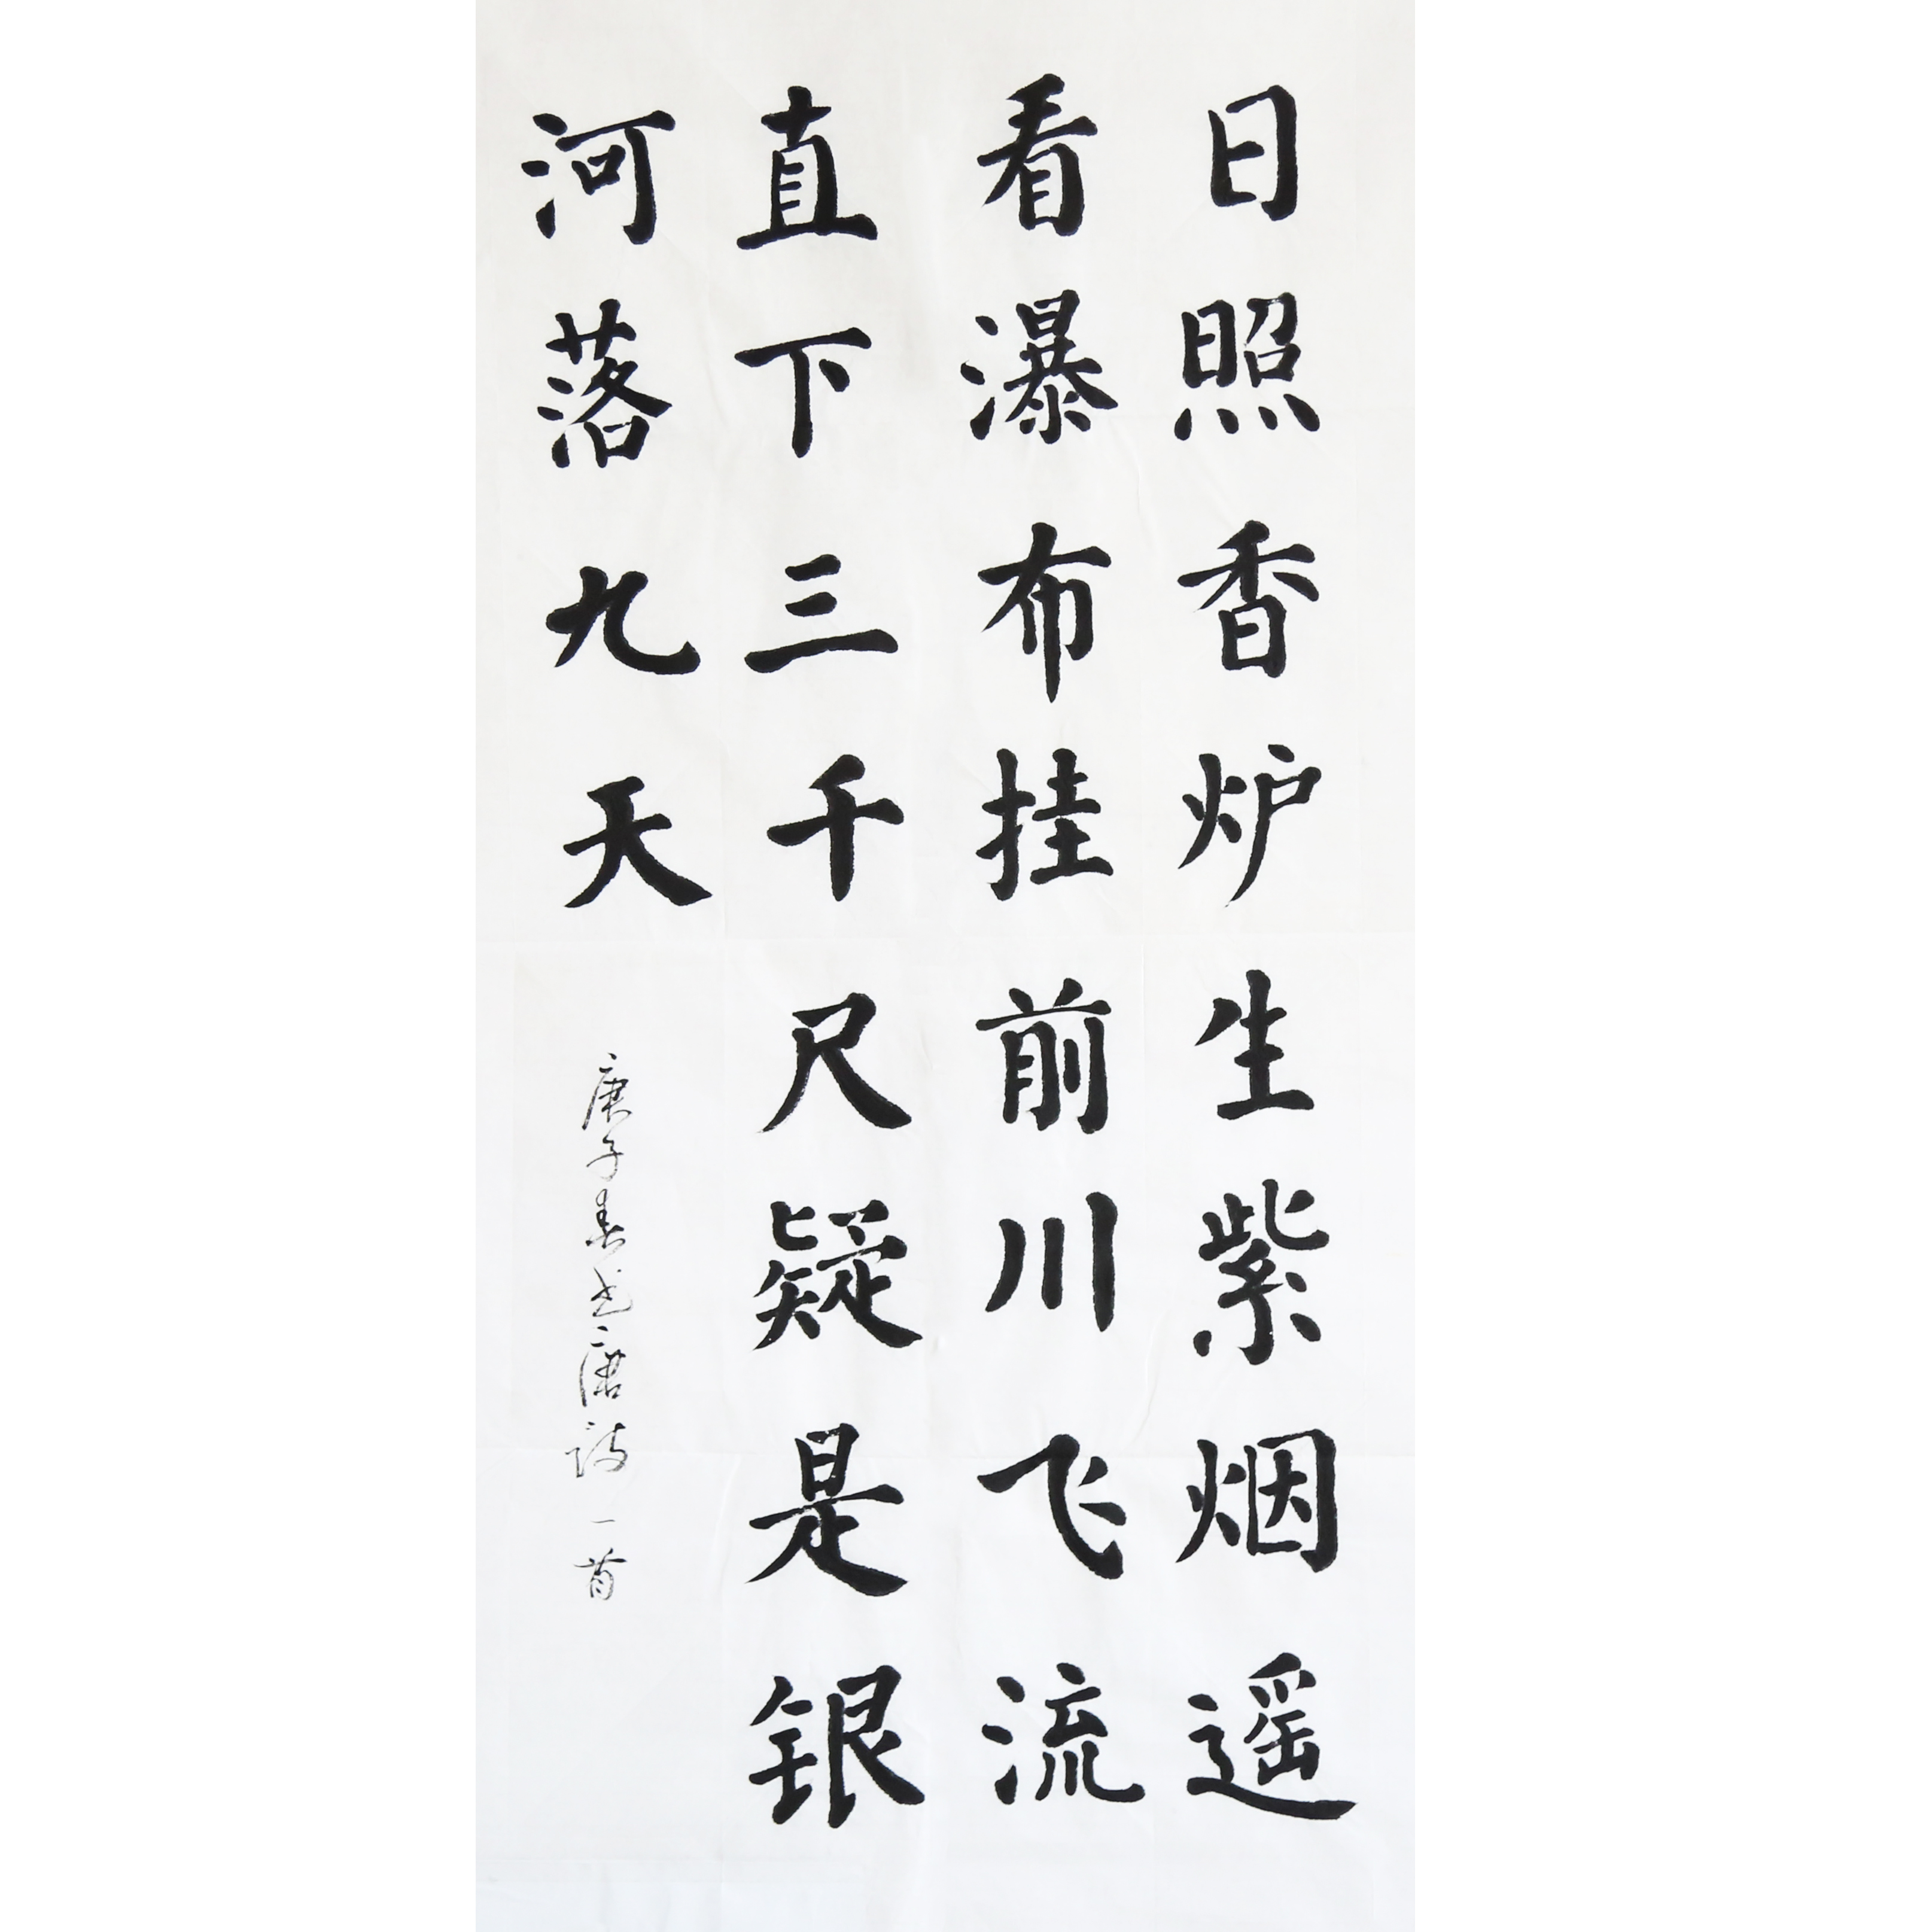 日照香炉生紫烟遥
看瀑布挂前川飞流
直下三千尺疑是银
河落九天
庚子春书唐诗一首